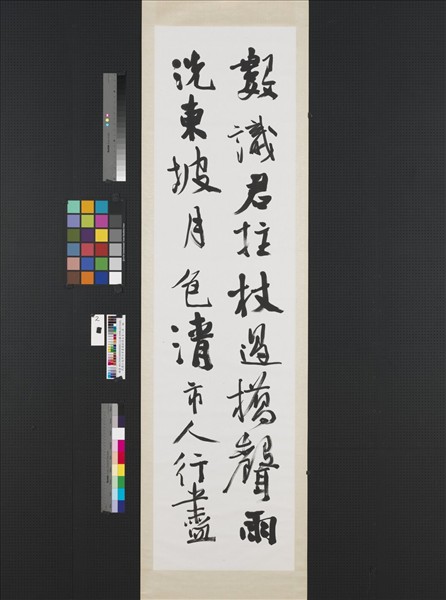 數識君拄杖過橋聲雨
洗東坡月色清市人行盡